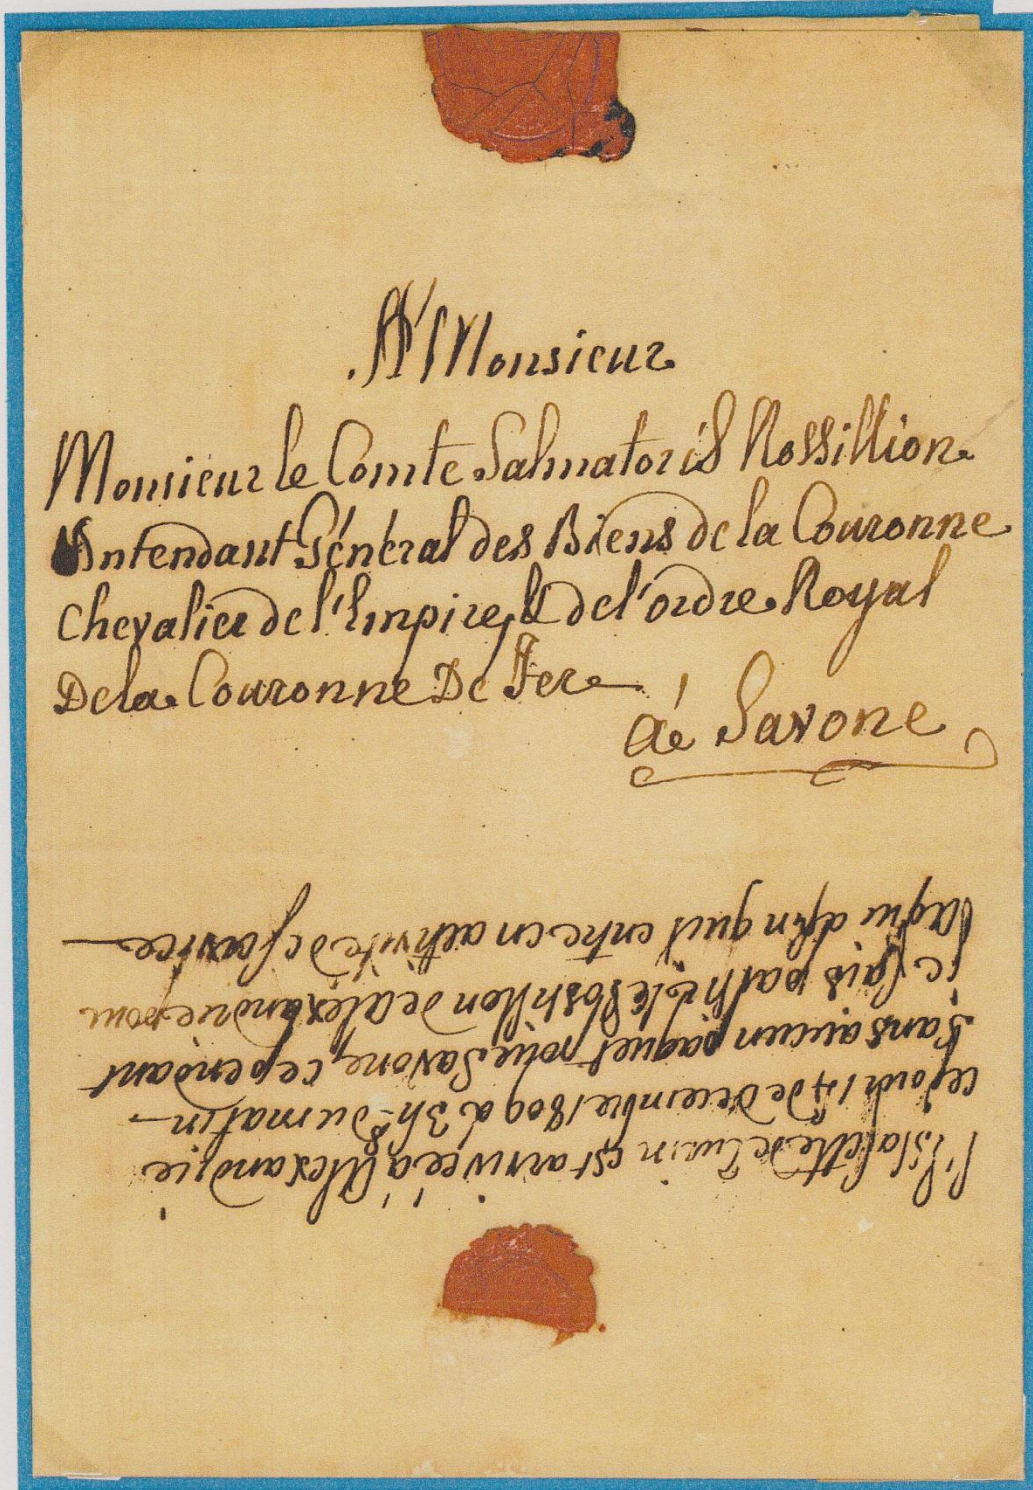 A Monsieur
Monsieur le Comte Salmatoris Rossillion
Intendant Général des Biens de la Couronne
Chevalier de l'Empire, & de l'ordre Royal
De la Couronne De Fer
à Savone
l'Estafette de Turin est arrivée à Alexandrie
ce jourd 14 de Decembre 1809 à 3h du matin
sans aucun paquet pour Savone, cependant
je fais partir le Postillon de Alexandrie pour
Acqui afin quil entre en activité de service